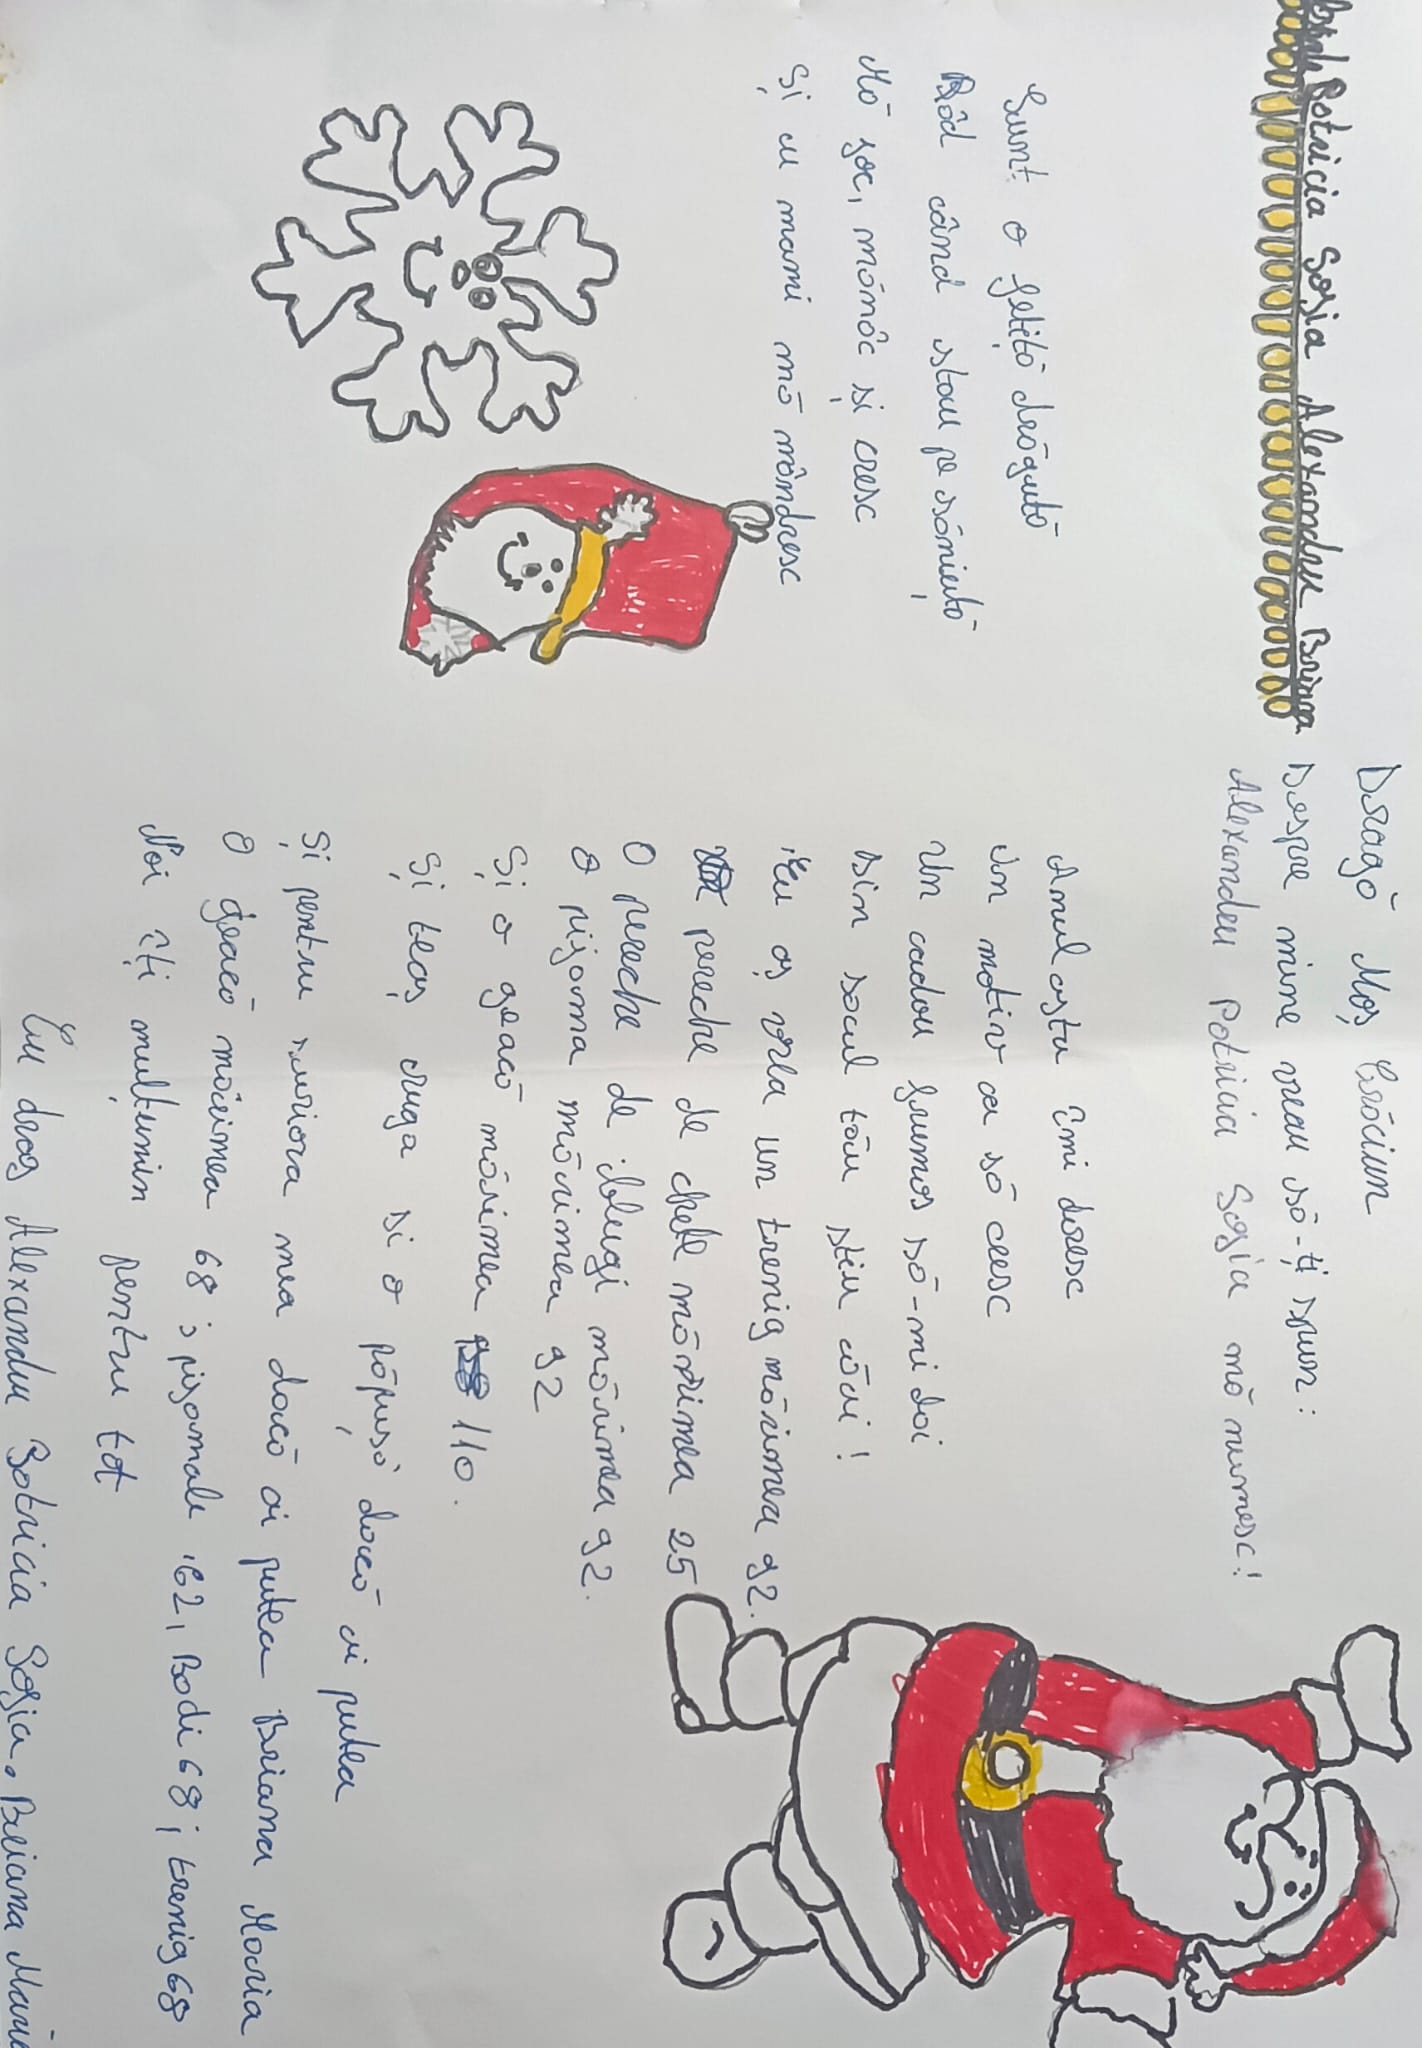 Patricia Sofia Alexandru Briana
Dragă Moș Crăciun
Despre mine vreau să-ți spun:
Alexandru Patricia Sofia mă numesc!
Sunt o fetiță drăguță
Râd când stau pe săniuță
Mă joc, mănânc și cresc
Și cu mami mă mândresc
Anul asta îmi doresc
Un motiv ca să cresc
Un cadou frumos să-mi dai
Din sacul tău știu că ai!
Eu aș vrea un trenig mărimea 92.
pereche de ghete mărimea 25
O pereche de blugi mărimea 92.
O pijama mărimea 92
Și o geacă mărimea 110.
Și teaș ruga și o păpușă dacă ai putea
Și pentru suriora mea dacă ai putea Briana Maria
O geacă mărimea 68; pijamale 62, Bodi 68; trenig 68
Noi îți mulțumin pentru tot
Cu drag Alexandru Patricia Sofia. Briana Maria